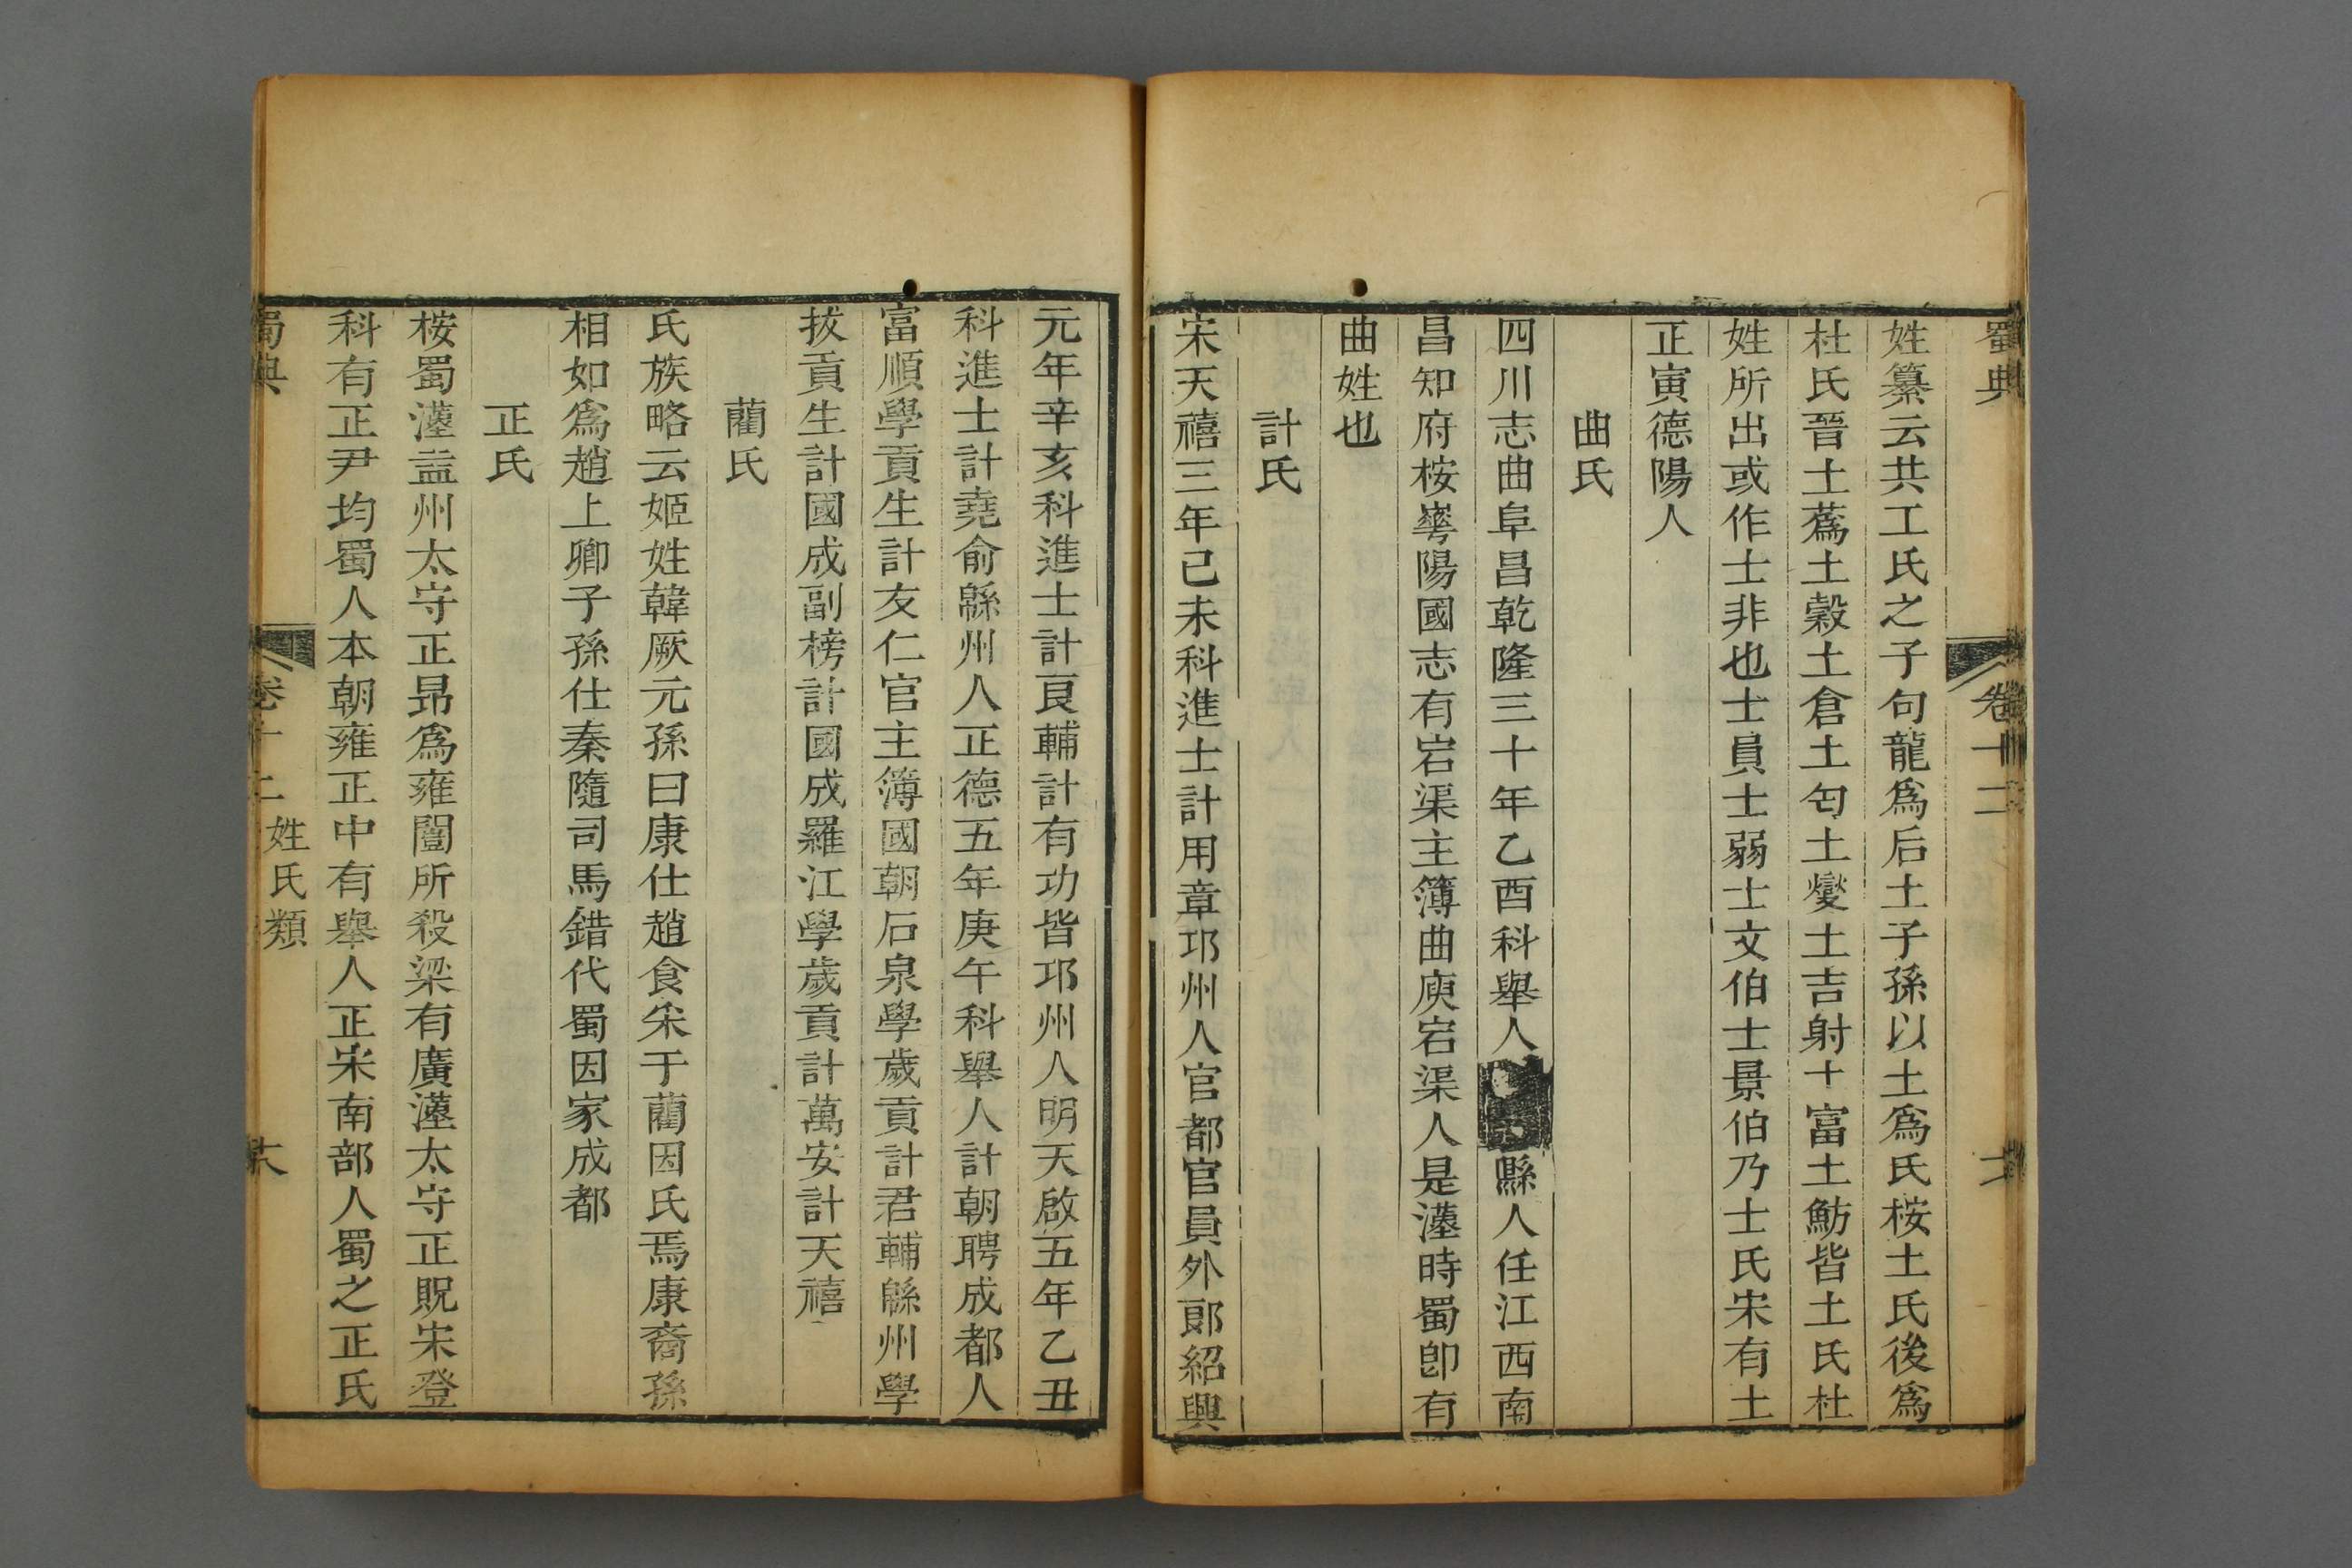 蜀典
卷十二
姓纂云共工氏之子句龍爲后土子孫以土爲氏桉土氏後爲
杜氏晉土蔿土縠土倉土匄土燮土吉射十富土魴皆土氏杜
姓所出或作士非也士員士弱士文伯士景伯乃士氏宋有土
正寅德陽人
曲氏
四川志曲阜昌乾隆三十年乙酉科舉人
縣人任江西南
昌知府桉崋陽國志有宕渠主簿曲庾宕渠人是漢時蜀卽有
曲姓也
計氏
宋天禧三年己未科進士計用章邛州人官都官員外郞紹興
元年辛亥科進士計良輔計有功皆邛州人明天啟五年乙丑
科進士計堯俞緜州人正德五年庚午科舉人計朝聘成都人
富順學貢生計友仁官主簿國朝石泉學歲貢計君輔緜州學
拔貢生計國成副榜計國成羅江學歲貢計萬安計天禧
藺氏
氏族略云姬姓韓厥元孫曰康仕趙食采于藺因氏焉康裔孫
相如爲趙上卿子孫仕秦隨司馬錯代蜀因家成都
正氏
桉蜀漢益州太守正昻爲雍闓所殺梁有廣漢太守正貺宋登
科有正尹均蜀人本朝雍正中有舉人正宋南部人蜀之正氏
蜀典
卷十二
姓氏類